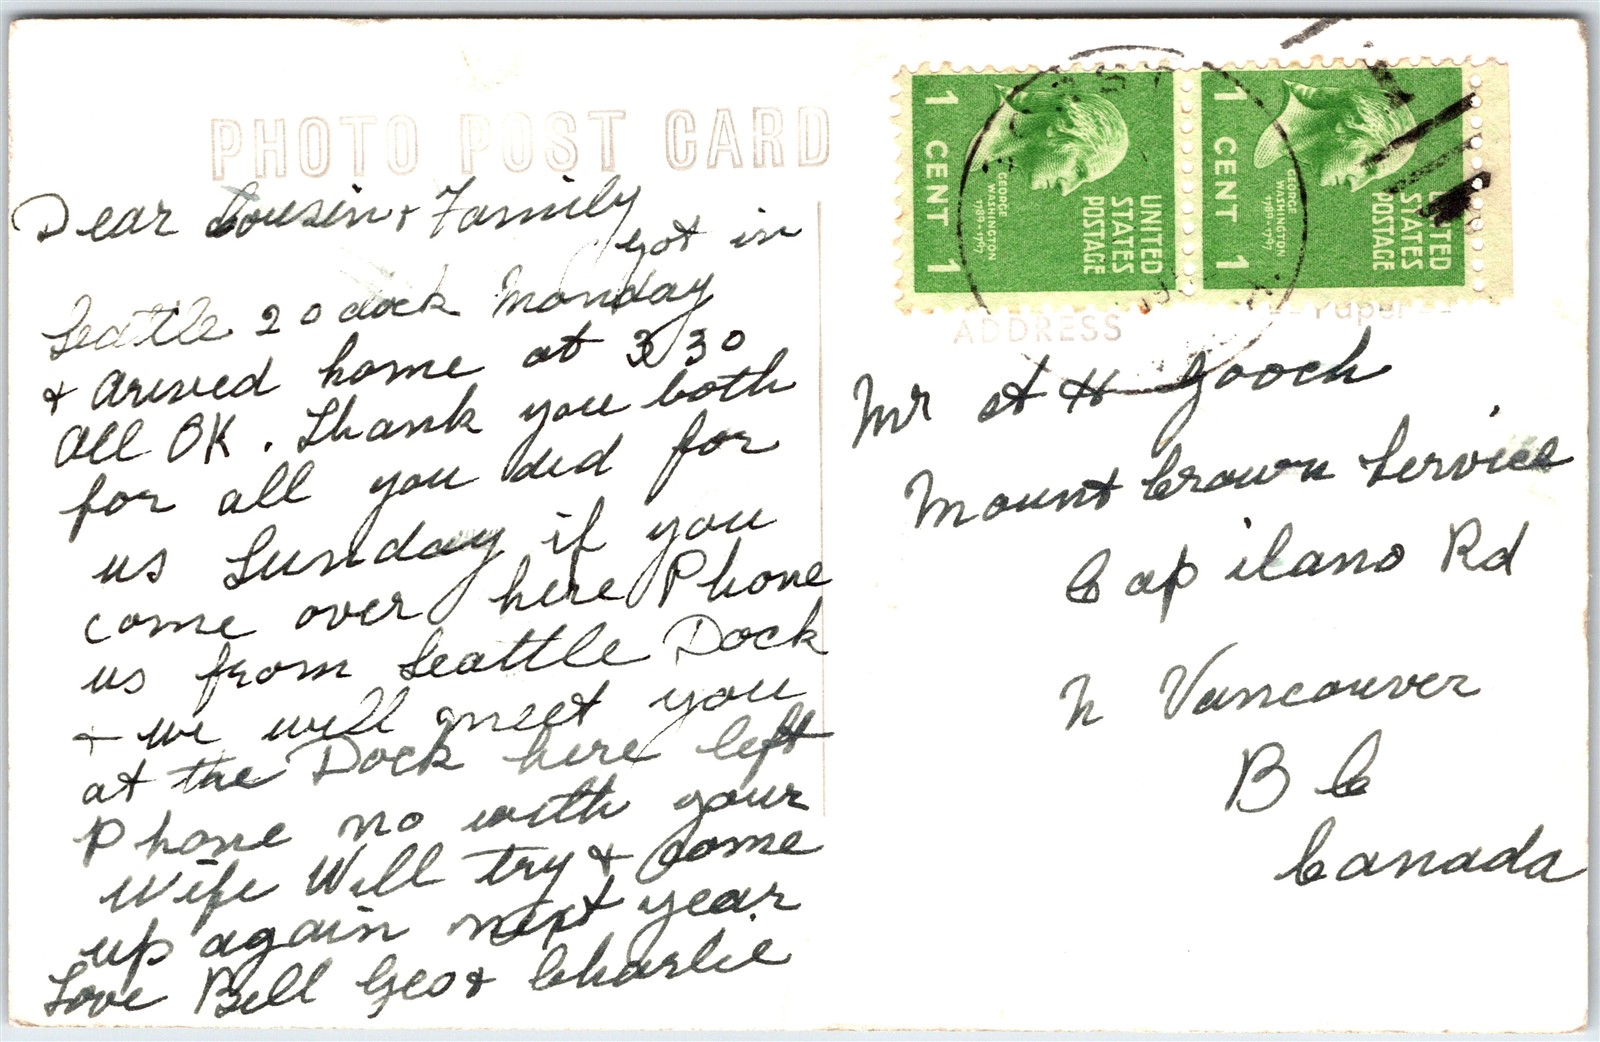 PHOTO POST CARD
Dear Cousin & Family
got in
Seattle 2 o clock Monday
& Arived home at 3 30
All OK. Thank you both
for all you did for
us Sunday if you
come over here Phone
us from Seattle Dock
& we will meet you
at the Dock here left
Phone no with your
Wife Will try & Come
up again next year
Love Bell Geo & Charlie
1 CENT 1
GEORGE
WASHINGTON
1789-1797
UNITED
STATES
POSTAGE
1 CENT 1
GEORGE
WASHINGTON
1789-1797
UNITED
STATES
POSTAGE
ADDRESS
Paper
Mr A H Gooch
Mount Crown Service
Capilano Rd
N Vancouver
B C
Canada